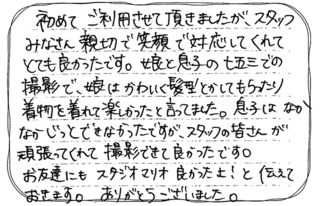 初めて ご利用させて頂きましたが、スタッフ
みなさん 親切で笑顔で対応してくれて
とても良かったです。娘と息子の七五三での
撮影で、娘は かわいく髪型とかしてもらったり
着物を着れて楽しかったと言ってました。息子は なか
なか じっとできなかったですが、スタッフの皆さんが
頑張ってくれて 撮影できて良かったです。
お友達にも スタジオマリオ 良かったよ!と 伝えて
おきます。 ありがとうございました。